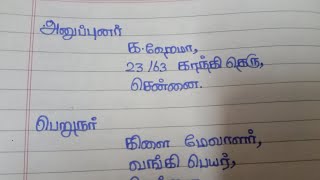 அனுப்புனர்
க.ஹேமா,
23/63 காந்தி தெரு,
சென்னை.
பெறுநர்
கிளை மேலாளர்,
வங்கி பெயர்,